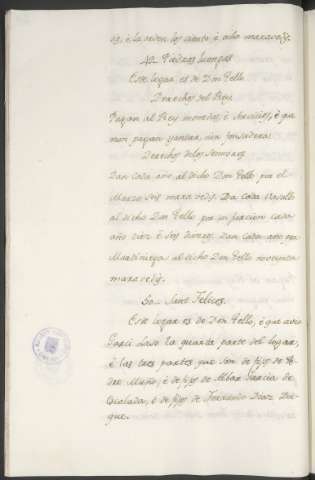 os, é la orden los ciento é ocho maraved.s
42 Piedras Luengas
Este logar es de Don Tello
Derechos del Rey
Pagan al Rey monedas, é servicios, é que
non pagan yantar, nin fonsadera:
Derechos delos Sennores
Dan cada año al dicho Don Tello por el
Marzo seis maravedis. Da cada Vasallo
al dicho Don Tello por infurcion cada
año diez é seis dineros. Dan cada año por
Martiniega al dicho Don Tello noventa
maravedis.
Sant Felices.
Este logar es de Don Tello, é que avia
Garci Laso la quarta parte del logar,
é las tres partes que son de fijos de Pe-
dro Muño, é de fijos de Albar Garcia de
é de fijos de Ferrando Diaz Du-
que.